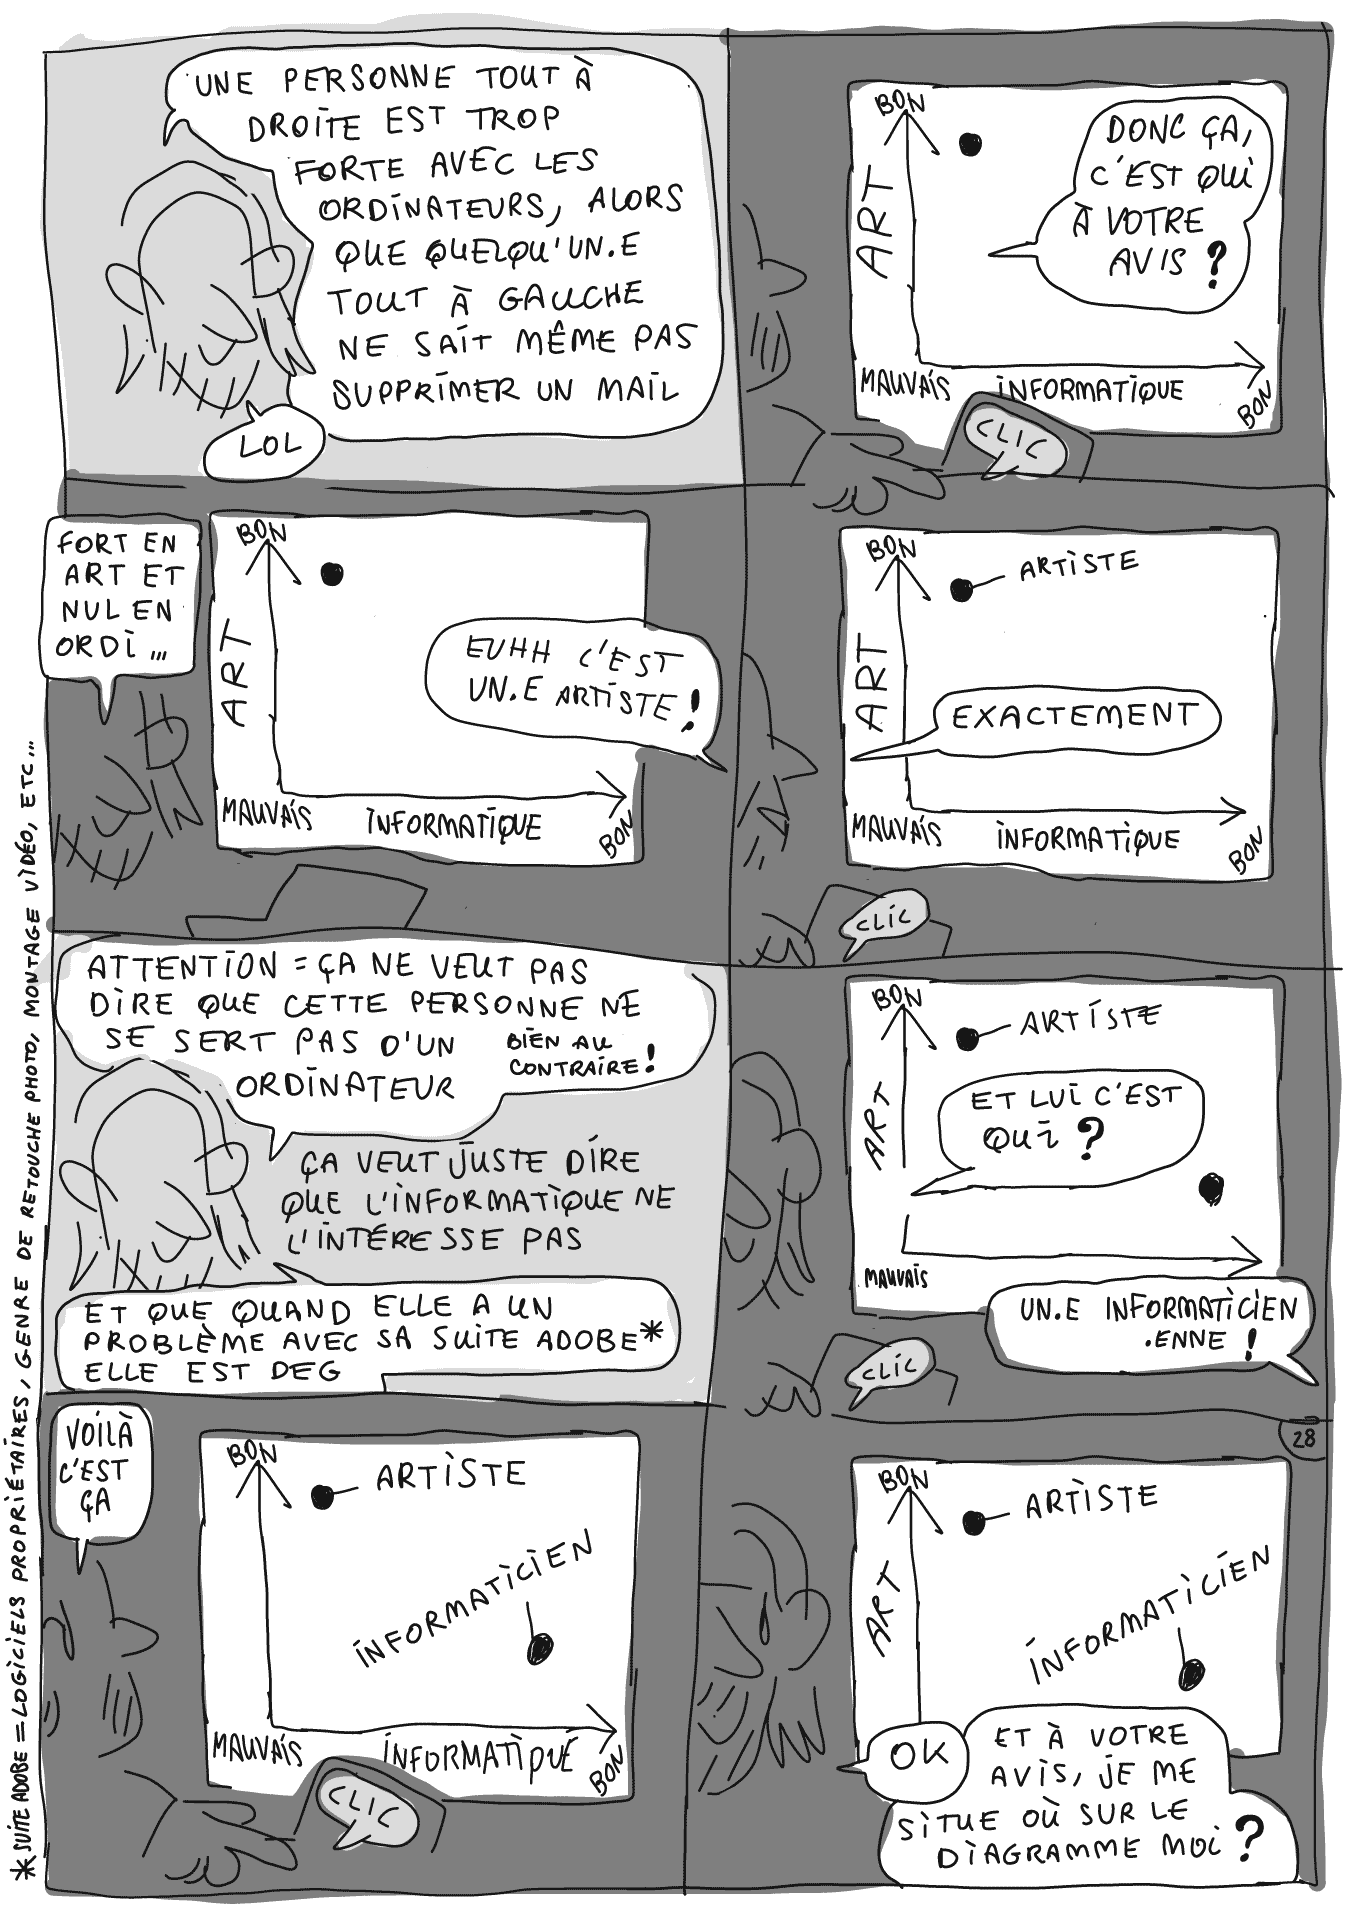 UNE PERSONNE TOUT À
DROITE EST TROP
FORTE AVEC LES
ORDINATEURS, ALORS
QUE QUELQU'UN.E
TOUT À GAUCHE
NE SAIT MÊME PAS
SUPPRIMER UN MAIL
LOL
BON
ART
DONC ÇA,
C'EST QUI
À VOTRE
AVIS ?
MAUVAIS
INFORMATIQUE
BON
CLIC
FORT EN
ART ET
NUL EN
ORDI ...
BON
ART
EUHH C'EST
UN.E ARTISTE !
MAUVAIS
INFORMATIQUE
BON
BON
ARTISTE
ART
EXACTEMENT
MAUVAIS
INFORMATIQUE
BON
CLIC
ATTENTION = ÇA NE VEUT PAS
DIRE QUE CETTE PERSONNE NE
SE SERT PAS D'UN
ORDINATEUR
BIEN AU
CONTRAIRE !
ÇA VEUT JUSTE DIRE
QUE L'INFORMATIQUE NE
L'INTÉRESSE PAS
ET QUE QUAND ELLE A UN
PROBLÈME AVEC SA SUITE ADOBE*
ELLE EST DEG
BON
ARTISTE
ART
ET LUI C'EST
QUI ?
MAUVAIS
UN.E INFORMATICIEN
.ENNE !
CLIC
VOILÀ
C'EST
ÇA
BON
ARTISTE
INFORMATICIEN
MAUVAIS
INFORMATIQUE
BON
CLIC
28
BON
ARTISTE
ART
INFORMATICIEN
OK
ET À VOTRE
AVIS, JE ME
SITUE OÙ SUR LE
DIAGRAMME MOI ?
*SUITE ADOBE = LOGICIELS PROPRIÉTAIRES, GENRE DE RETOUCHE PHOTO, MONTAGE VIDÉO, ETC...